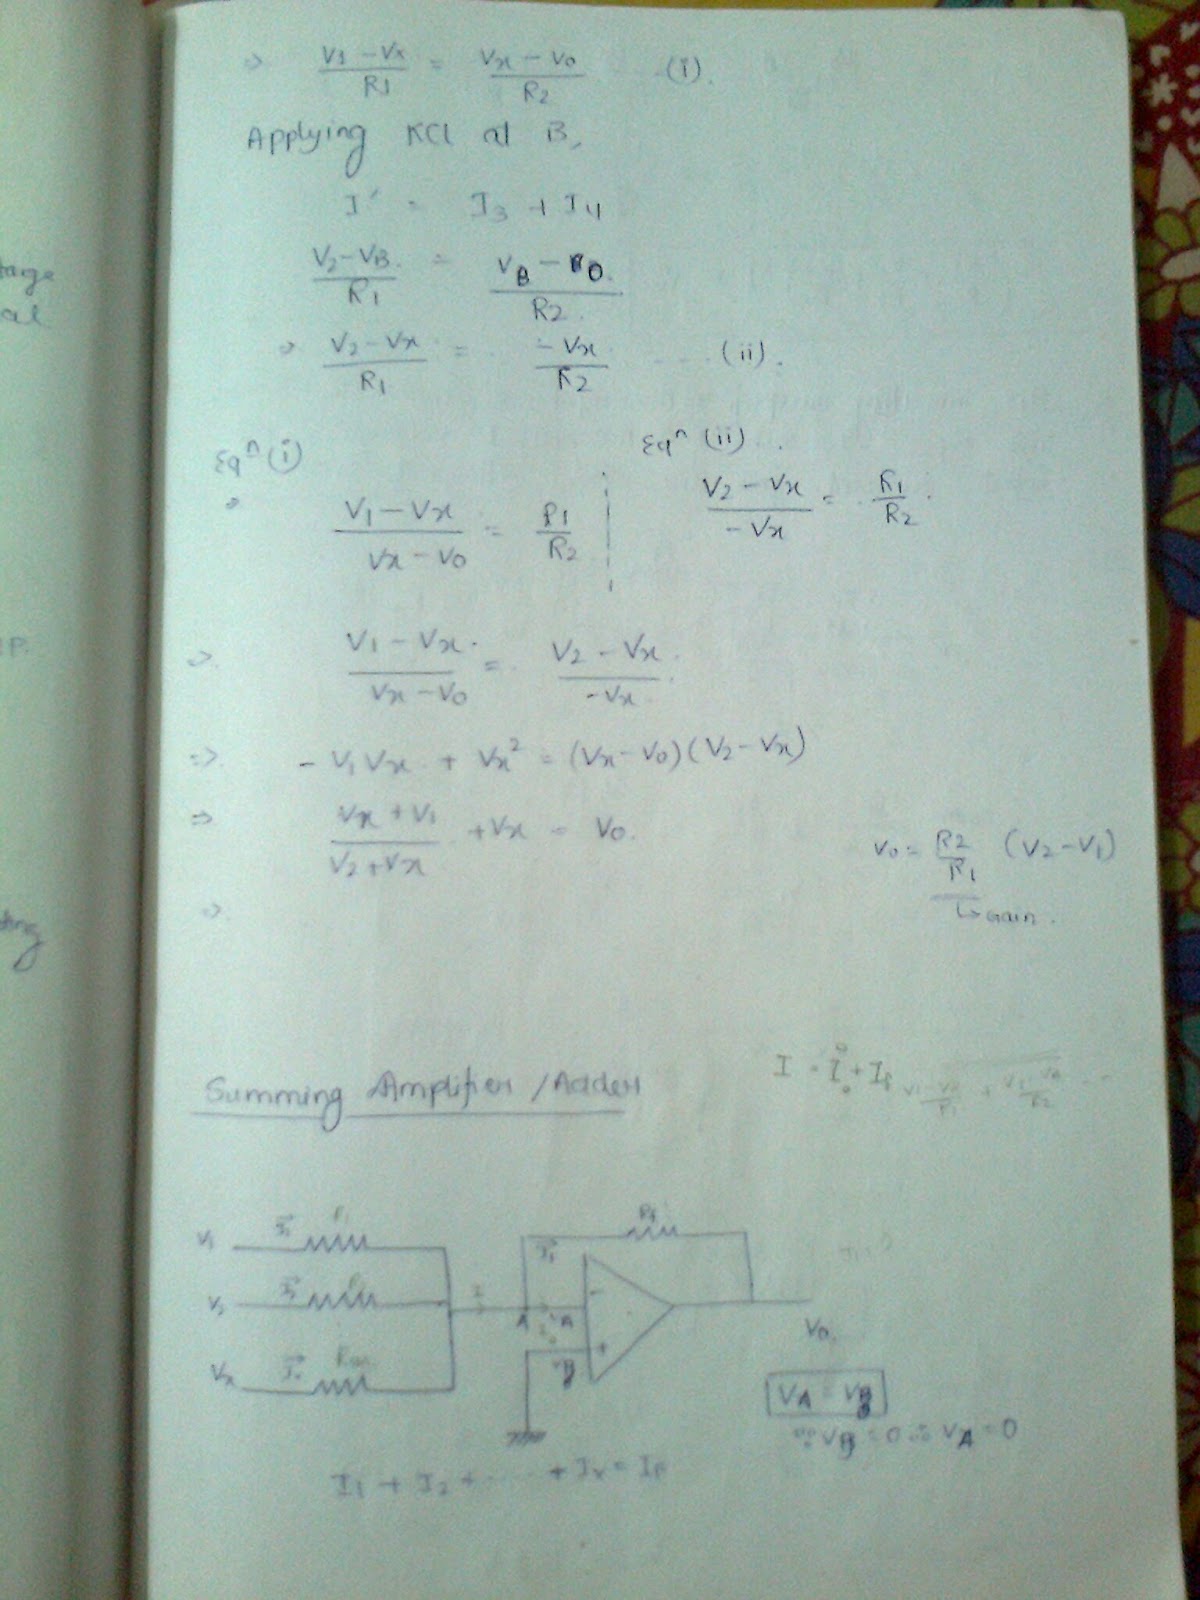 tage
al
P.
ting
=> V1 - Vx / R1 = Vx - Vo / R2 (i).
Applying KCL at B,
I' = I3 + I4
V2 - VB / R1 = VB - 0 / R2.
=> V2 - Vx / R1 = - Vx / R2 ... (ii).
Eqn (i)
=> V1 - Vx / Vx - Vo = R1 / R2
Eqn (ii) ..
V2 - Vx / - Vx = R1 / R2
=> V1 - Vx / Vx - Vo = V2 - Vx / - Vx
=> - V1 Vx + Vx² = (Vx - Vo) (V2 - Vx)
=> Vx + V1 / V2 + Vx + Vx = Vo.
=>
Vo = R2 / R1 (V2 - V1)
↳ Gain.
Summing Amplifier / Adder
I = Io + If
V1 I1 R1
V2
Vx
Rf
A VA -
VB +
Vo
VA = VB
∵ VB = 0 ∴ VA = 0
I1 + I2 + ..... + Ix = If